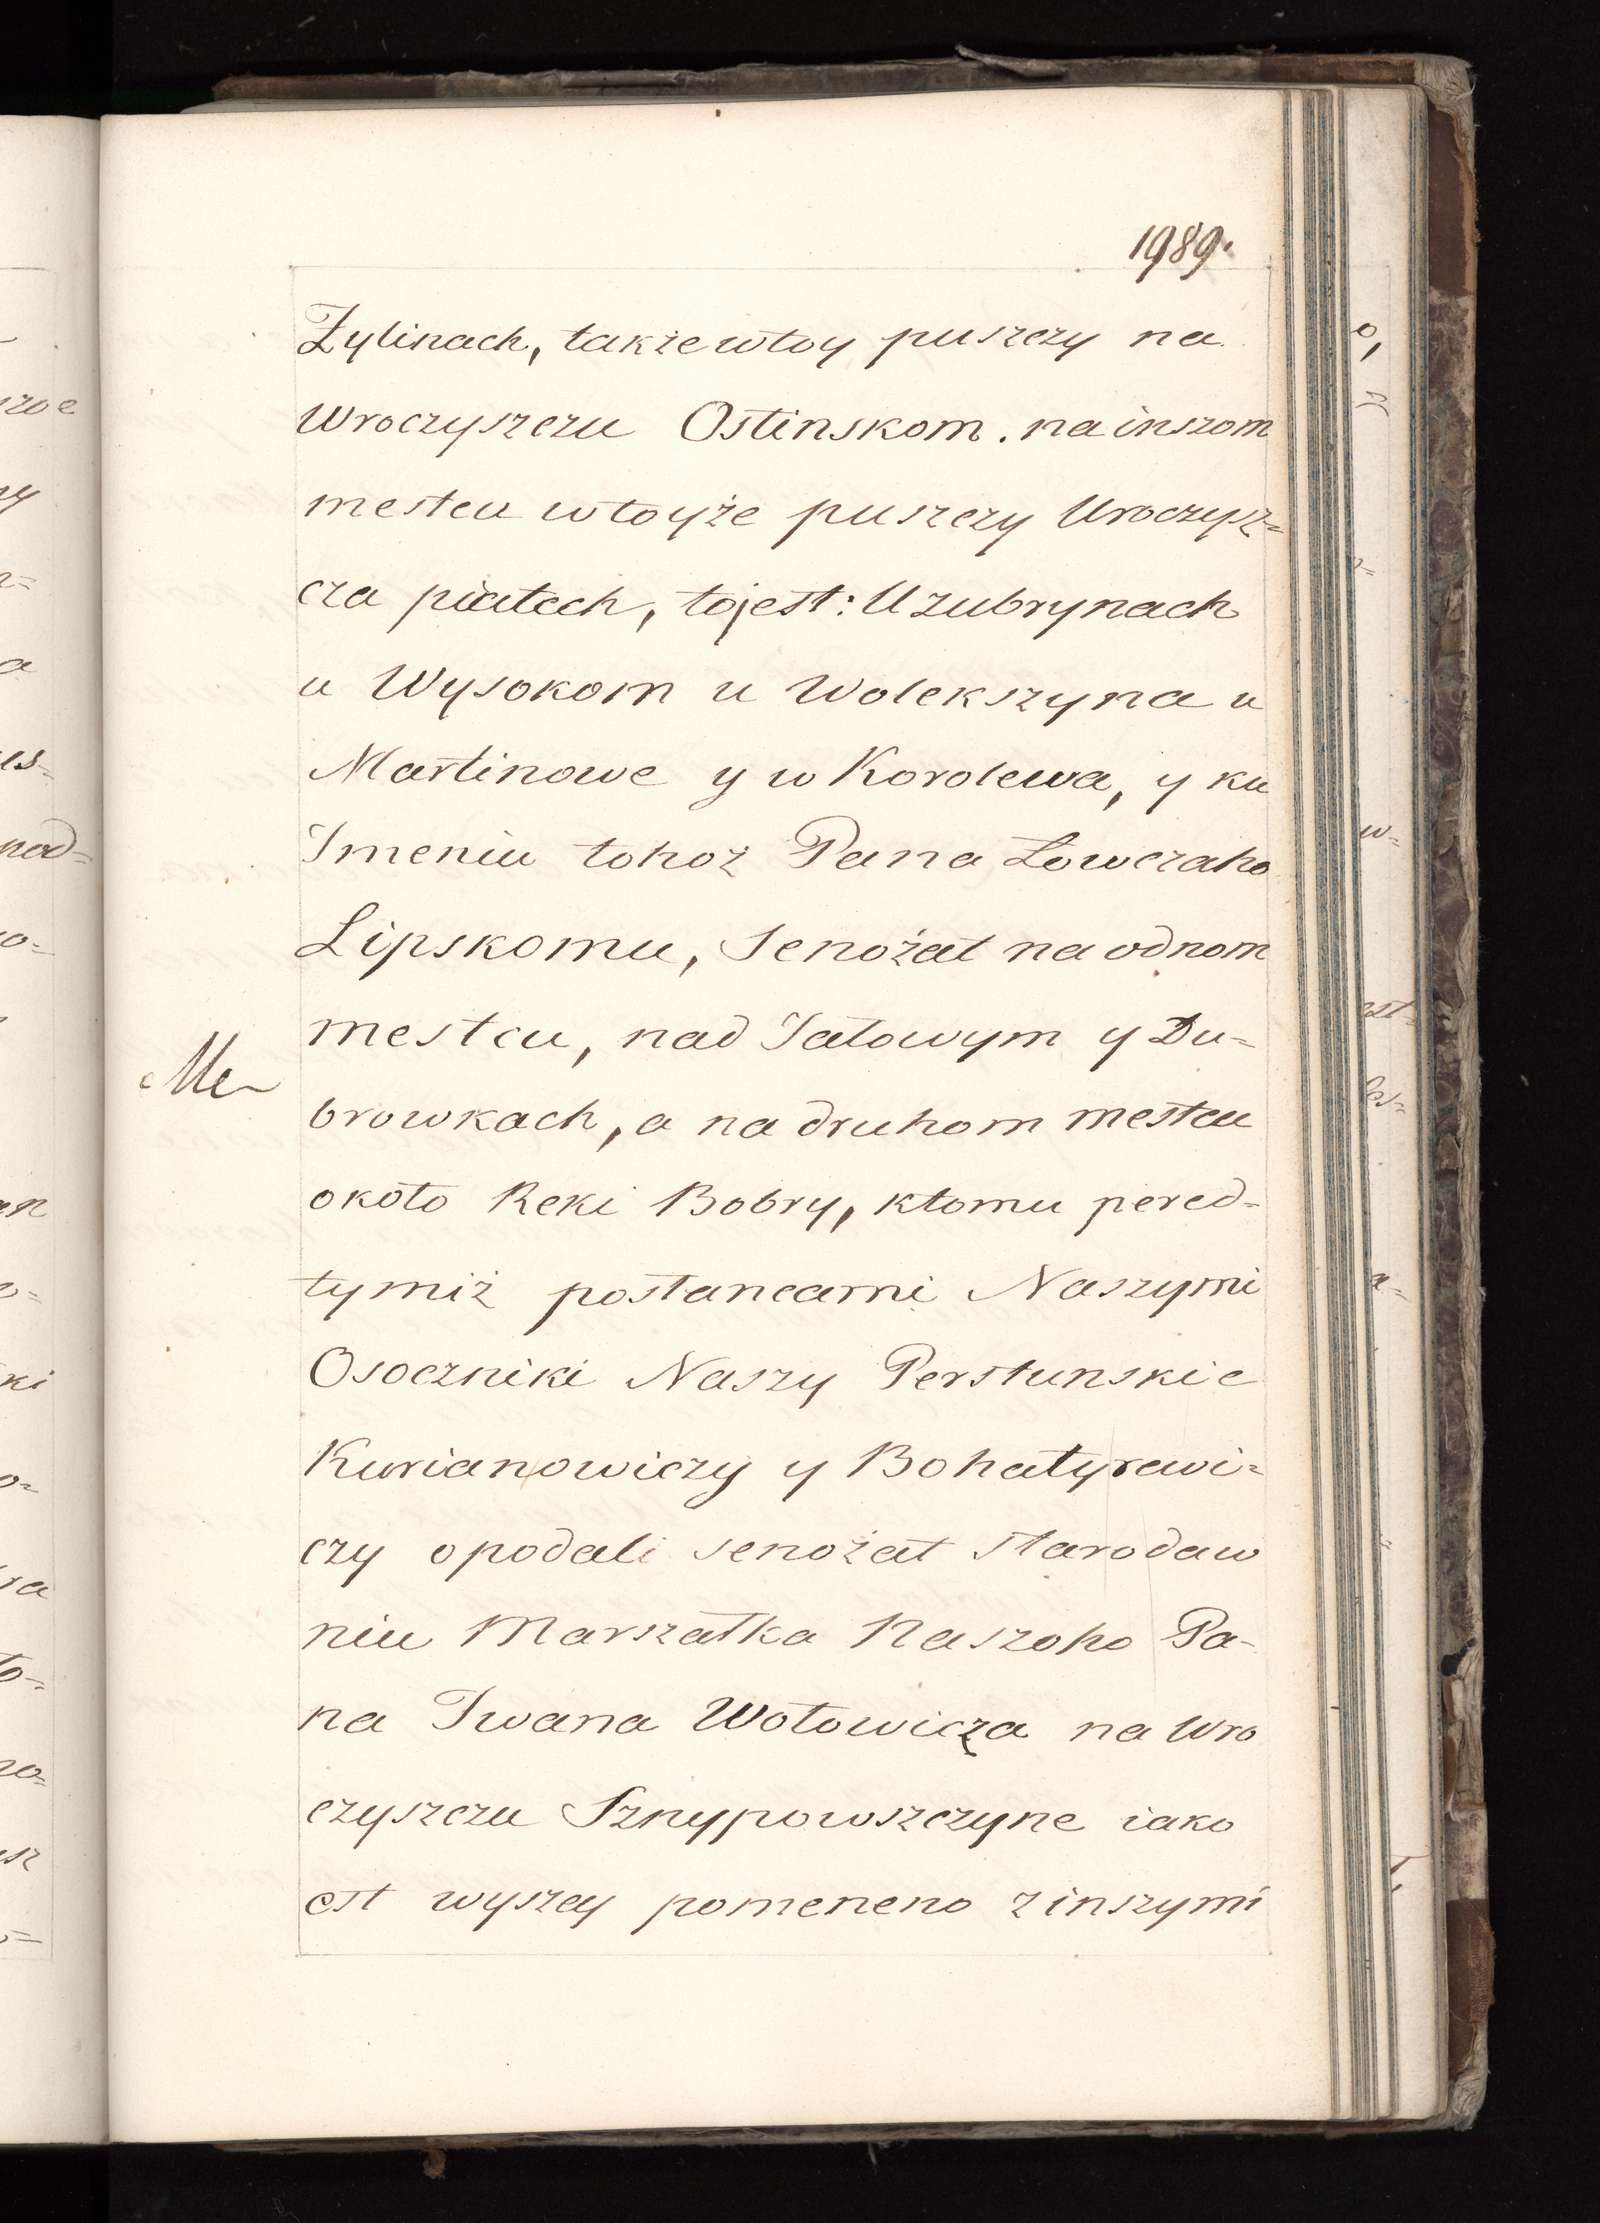 1989.
Zylinach, także wtoy puszczy na
Wroczyszczu Ostinskom. na inszom
mestcu wtoyże puszczy Uroczysz=
cza piatech, tojest: U zubrynach
u Wysokom u Wolekszyna u
Martinowe y w Korolewa, y ku
Imeniu tohoż Pana Łowczaho
Lipskomu, Senożat na odnom
mestcu, nad Jałowym y Du=
browkach, a na druhom mestcu
około Reki Bobry, ktomu pered=
tymiż posłancami Naszymi
Osoczniki Naszy Perstunskie
Kurianowiczy y Bohatyrewi=
czy opodali senożat starodaw
niu Marszałka Naszoho Pa-
na Iwana Wołowicza na Wro
czyszczu Sznypowszczyne iako
est wyszey pomeneno z inszymi